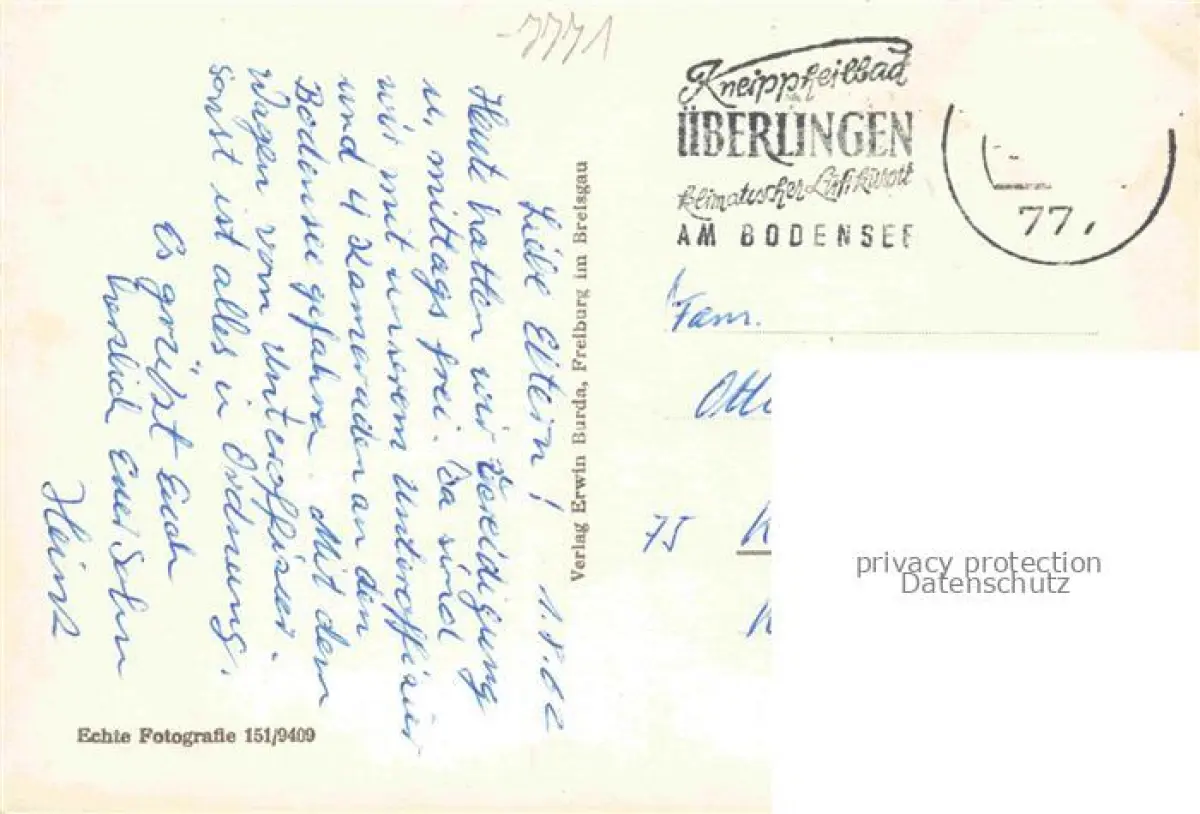 -7771
Kneippheilbad
ÜBERLINGEN
klimatischer Luftkurort
AM BODENSEE
77,
Liebe Eltern! 1.8.62
Heute hatten wir Vereidigung
u, mittags frei. Da sind
wir mit unserem Unteroffizier
und 4 Kameraden an den
Bodensee gefahren. Mit dem
Wagen vom Unteroffizier.
sonst ist alles in Ordnung.
Es grüßt Euch
herzlich Euer Sohn
Heinz
Verlag Erwin Burda, Freiburg im Breisgau
Echte Fotografie 151/9409
Fam.
Otto
75
privacy protection
Datenschutz